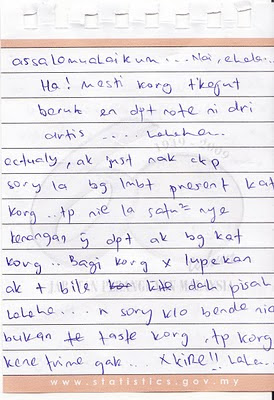 assalamualaikum... Nai, ehehe..
Ha! Mesti korg tikejut
beruk en dpt note ni dri
artis .... Lalehe..
ectualy, ak just nak ckp
sory la bg lmbt present kat
korg.. tp nie la satu² nye
kenangan yg dpt ak bg kat
korg.. Bagi korg x lupekan
ak + bile kite dah pisah
Lalaha... n sory klo bende nie
bukan taste korg, tp korg
kene trime gak... XKIRE!! Laha..
www.statistics.gov.my